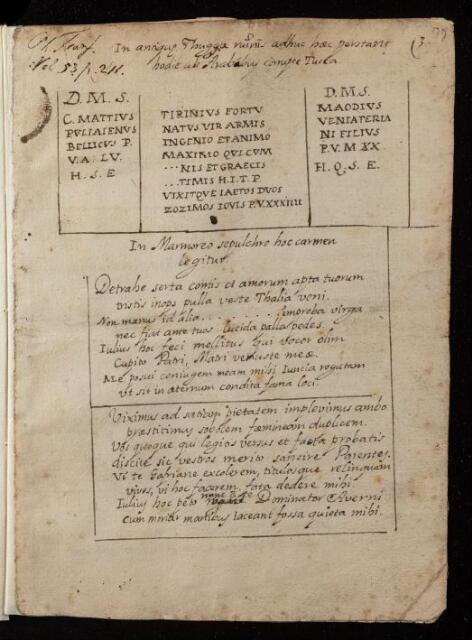 Ph. Trans.
Vol. 53 p. 211.
In antiquæ Thuggæ ruinis adhuc hæc perstant
hodie ab Arabibus corrupte Tucka
(3
D. M. S.
C. MATTIUS
PULLAIENUS
BELLICUS P.
V. A. LV.
H. S. E
TIRINIUS FORTU
NATUS VIR ARMIS
INGENIO ET ANIMO
MAXIMO QUI CUM
... NIS ET GRAECIS
... TIMIS H. I. T. P
VIXITQUE LAETOS DUOS
ZOZIMOS IOVIS P.V.XXXIIII
D. M. S.
MAODIUS
VENIATERIA
NI FILIUS
P. V. M XX.
H. Q. S. E.
In Marmoreo sepulchro hoc carmen
legitur.
Detrahe serta comis et amorum apta tuorum
tristis inops pulla veste Thalia veni.
Non manus id alia . . . . . . . . improba virga
nec fiat ante tuos lucida palla pedes.
Iulius hoc feci mellitus qui vocor olim
Cupito Patri, Matri venustæ meæ.
Me posui coniugem meam mihi Iunctâ rogatam
ut sit in æternum condita fama loci.
Viximus ad satiem pietatem implevimus ambo
præstitimus sobolem fæmineam duplicem.
Vos quoque qui legitis versus et facta probatis
discite sic vestros merito sancire Parentes.
Vi te Patriæ excolerem, titulosque relinquam
vivus, vi hoc facerem fata dedere mihi.
Iulius hoc peto nunc a te Dominator Averni
Cum moriar manibus iaceant fossa quieta mihi.